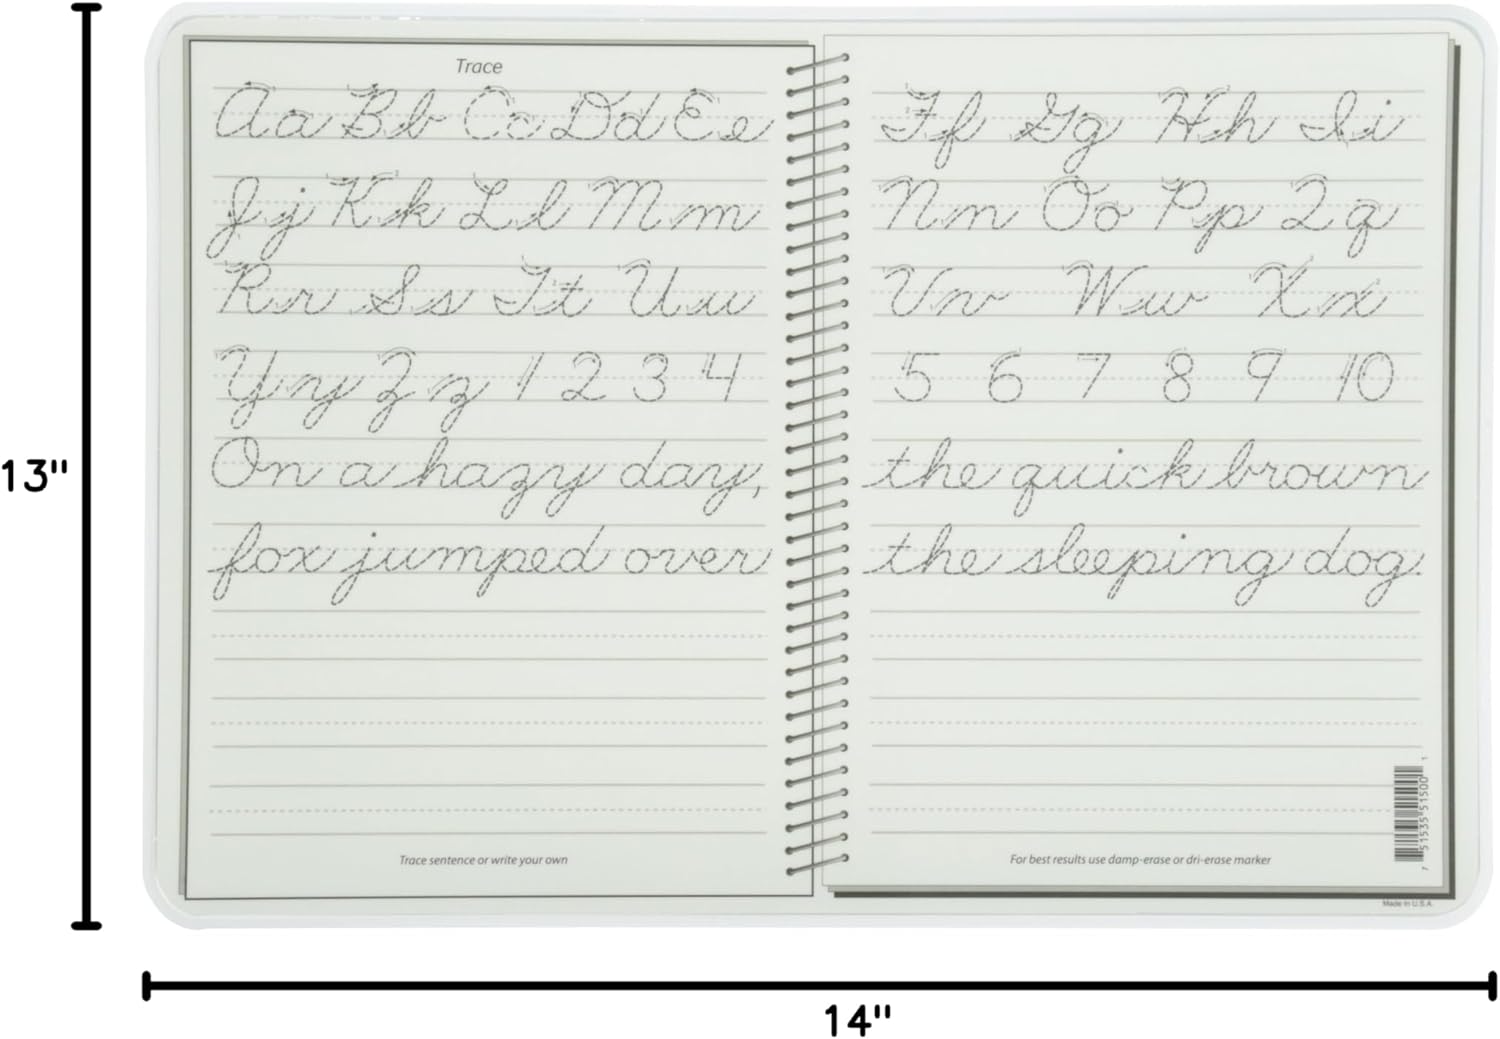 Trace
Aa Bb Cc Dd Ee
Ff Gg Hh Ii
Jj Kk Ll Mm
Nn Oo Pp Qq
Rr Ss Tt Uu
Vv Ww Xx
Yy Zz 1 2 3 4
5 6 7 8 9 10
On a hazy day,
the quick brown
fox jumped over
the sleeping dog.
Trace sentence or write your own
For best results use damp-erase or dri-erase marker
7 51535 51500 1
Made in U.S.A.
13"
14"